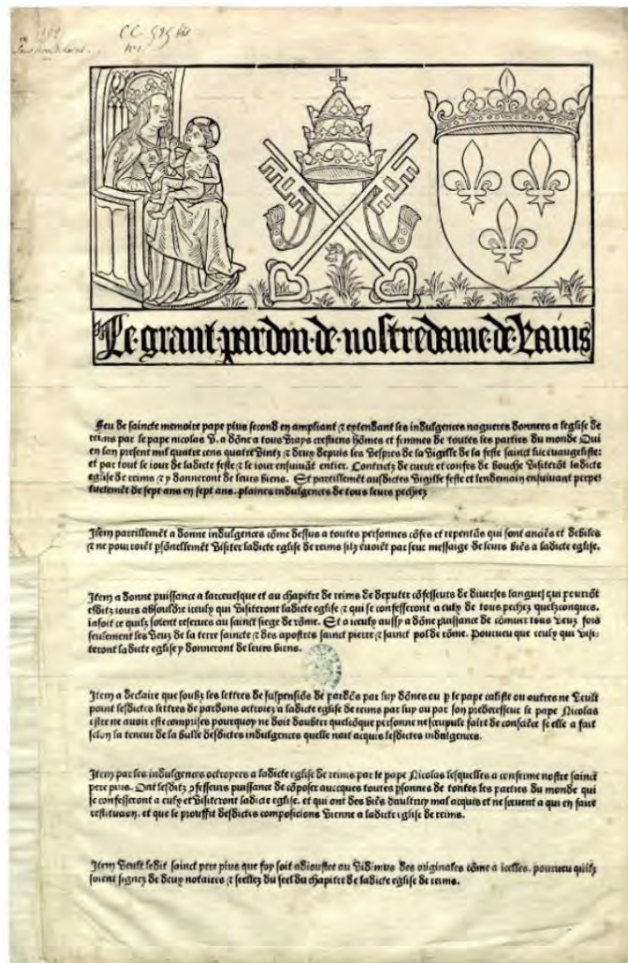 CC 595 bis
n° 1.
Le·grant·pardon·de·nostredame·de·Rains
Feu de saincte memoire pape pius second en ampliant ⁊ extendant les indulgences nagueres donnees a leglise de
reims par le pape nicolas v. a dōne a tous vrays crestiens hōmes et femmes de toutes les parties du monde Qui
en lan present mil quatre cens quatre vintz ⁊ deux depuis les vespres de la vigille de la feste sainct luc euangeliste:
et par tout le iour de ladicte feste ⁊ le iour ensuiuāt entier. Contrictz de cueur et confes de bouche visiterōt ladicte
eglise de reims ⁊ y donneront de leurs biens. Et pareillemēt ausdictes vigille feste et lendemain ensuiuant perpe
tuelemēt de sept ans en sept ans. plaines indulgences de tous leurs pechez
Item pareillemēt a donne indulgences cōme dessus a toutes personnes cōfes et repentās qui sont anciēs et debiles
⁊ ne pourroiēt psōnellemēt visiter ladicte eglise de reims silz ēuoiēt par seur messaige de leurs biēs a ladicte eglise.
Item a donne puissance a larceuesque et au chapitre de reims de deputer cōfesseurs de diuerses langues qui pourrōt
esditz iours absouldre iceulx qui visiteront ladicte eglise ⁊ qui se confesseront a eulx de tous pechez quelzconques.
iasoit ce quilz soient reserues au sainct siege de rōme. Et a iceulx aussy a dōne puissance de cōmuer tous veuz fors
seulement les veuz de la terre saincte ⁊ des apostres sainct pierre ⁊ sainct pol de rōme. Pourueu que ceulx qui visi-
teront ladicte eglise y donneront de leurs biens.
Item a declaire que soubz les lettres de suspensiōs de pardōs par luy dōnes ou p le pape calixte ou autres ne veult
point lesdictes lettres de pardons octroiez a ladicte eglise de reims par luy ou par son predecesseur le pape Nicolas
estre ne auoir este comprises pourquoy ne doit doubter quelcōque personne ne scrupule faire de consciēce se elle a fait
selon la teneur de la bulle desdictes indulgences quelle nait acquis lesdictes indulgences.
Item par les indulgences octroyees a ladicte eglise de reims par le pape Nicolas lesquelles a conferme nostre sainct
pere pius. Ont lesditz ꝯfesseurs puissance de cōposer auecques toutes psonnes de toutes les parties du monde qui
se confesseront a eulx et visiteront ladicte eglise. et qui ont des biēs daultruy mal acquis et ne sceuent a qui en faire
restitucion. et que le prouffit desdictes composicions vienne a ladicte eglise de reims.
Item veult ledit sainct pere pius que foy soit adioustee au vidimus des originales cōme a icelles. pourueu quilz
soient signez de deux notaires ⁊ seellez du seel du chapitre de ladicte eglise de reims.